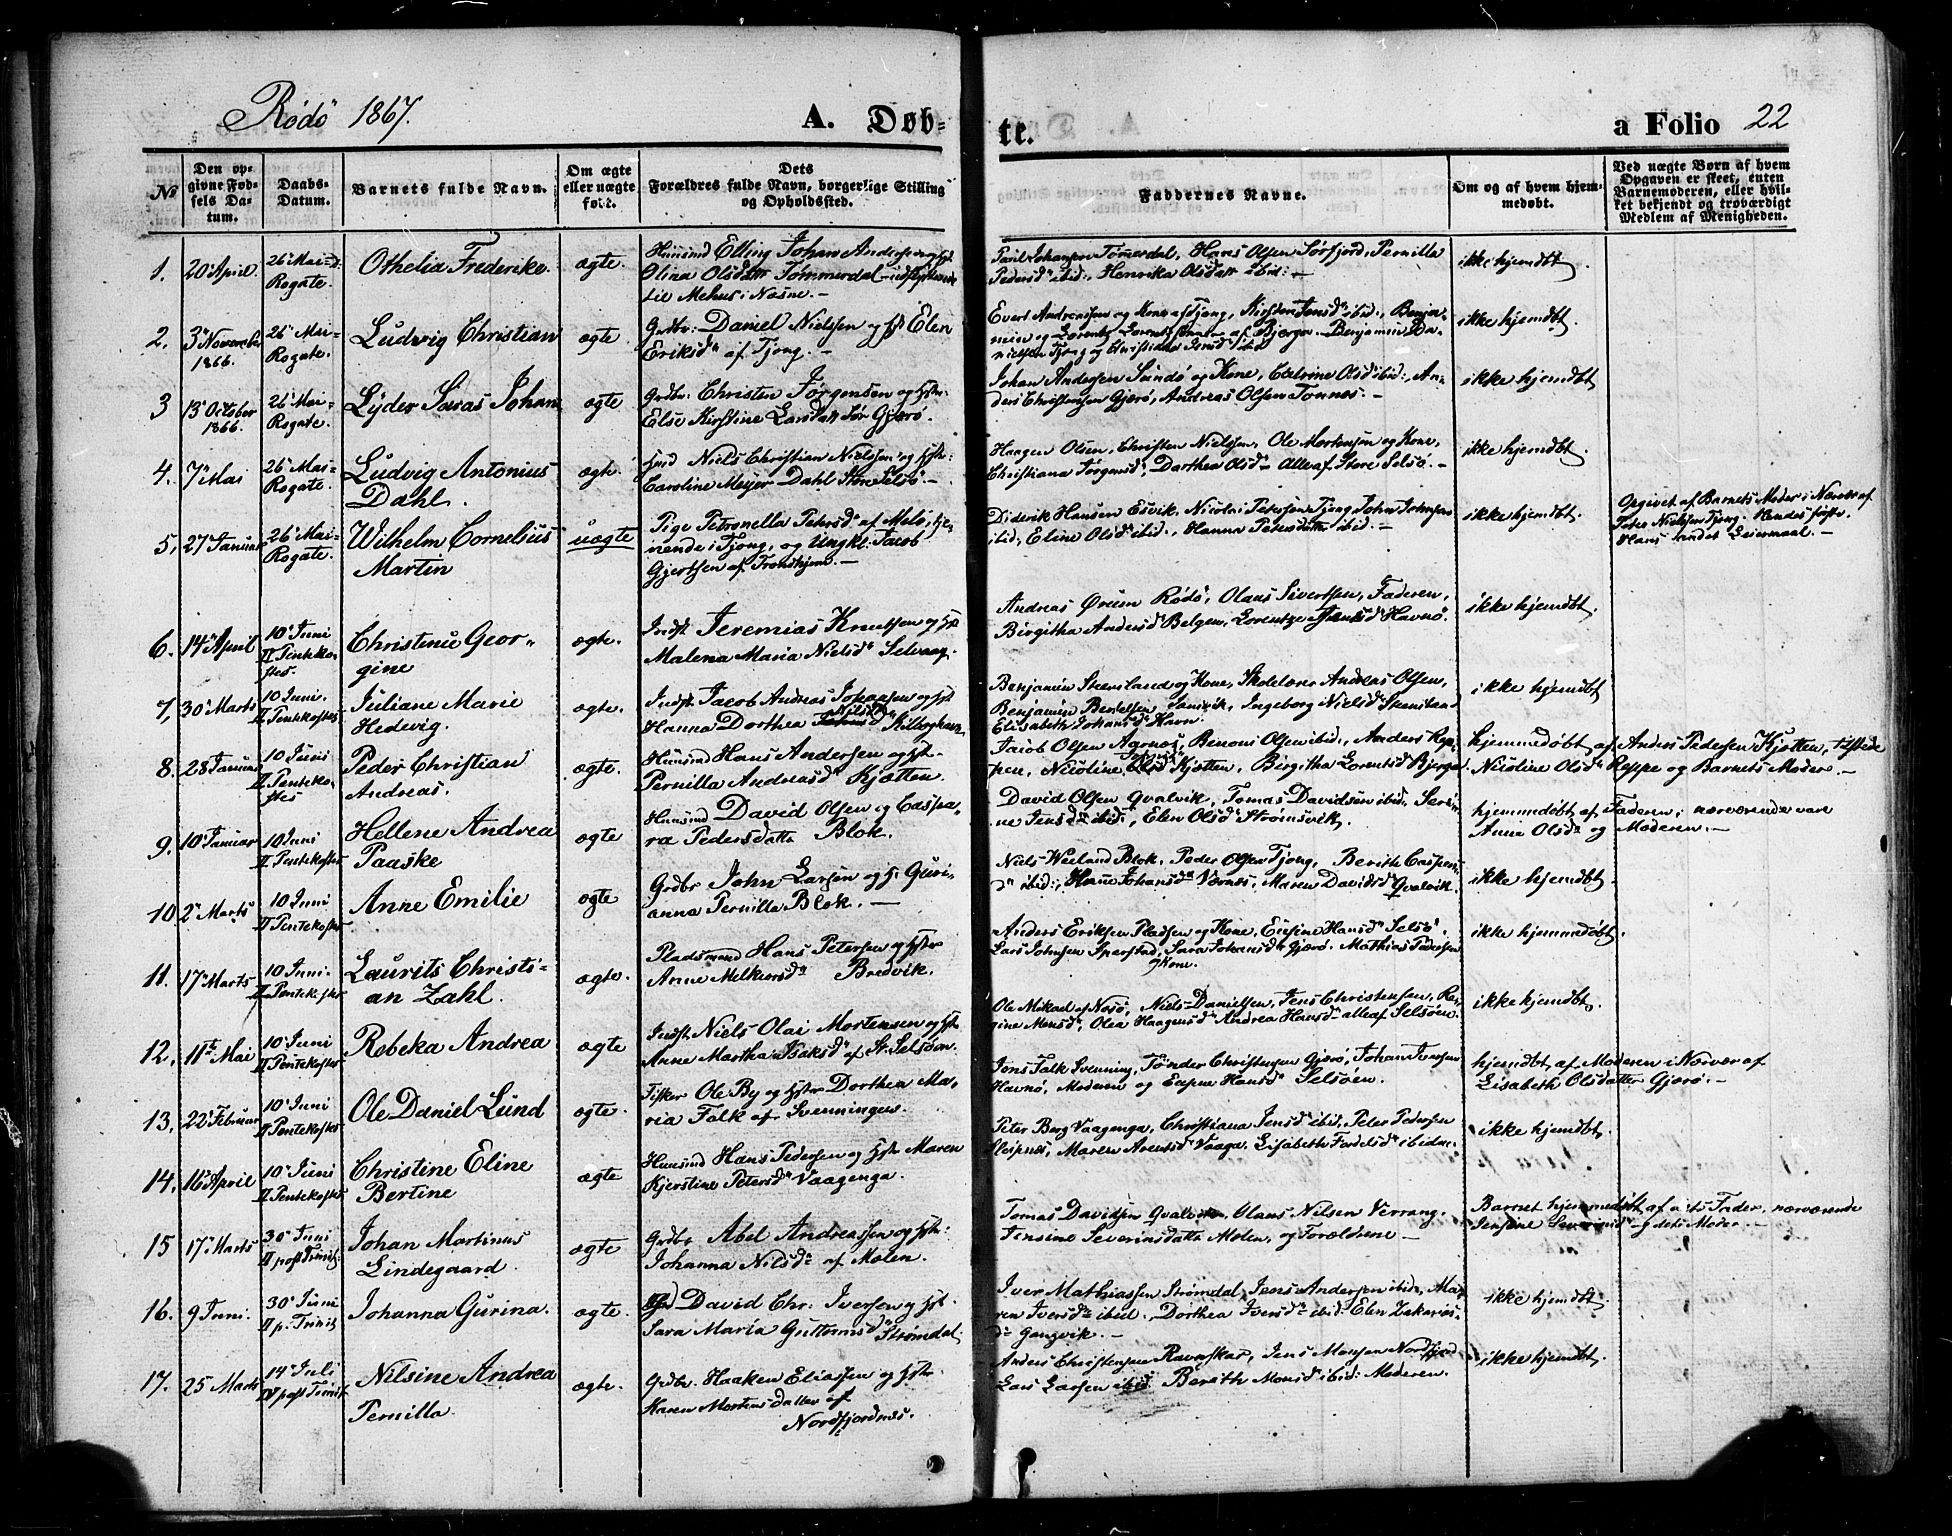 Rødø 1867.
A. Døb-
te.
a Folio 22
№
Den op-
givne Fød-
sels Da-
tum.
Daabs-
Datum.
Barnets fulde Navn.
Om ægte
eller uægte
født.
Dets
Forældres fulde Navn, borgerlige Stilling
og Opholdssted.
Faddernes Navne.
Om og af hvem hjem-
medøbt.
Ved uægte Børn af hvem
Opgaven er skeet, enten
Barnemoderen, eller hvil-
ket bekjendt og troværdigt
Medlem af Menigheden.
1.
20 April
26 Mai
Rogate.
Othelia Frederike
ægte.
Huusmd Elling Johan Andersen og Hst
Olina Olsdatt Tømmerdal
Mehus i Næsne.
Tømerdal, Hans Olsen Sørfjord, Pernilla
Pedersd ibid., Henrika Olsdatt ibid: -
ikke hjemdbt
2.
3 November
1866.
26 Mai
Rogate.
Ludvig Christian
ægte
Grdbr: Daniel Nielsen og Hst Elen
Eriksd af Tjong. -
Evert Andreassen og Kone af Tjong, Kirsten Jensd ibid., Benja-
min og Lorentz af Bjærga. Benjamin Da-
nielsen Tjong og Christiana Jensd ibid
ikke hjemdbt.
3
13 October
1866.
26 Mai
Rogate.
Lyder Saras Johan
ægte
Grdbr: Christen Jørgensen og Hstr:
Else Kirstine Larsdatt Sør Gjærø.
Johan Andersen Sundø og Kone, Catrine Olsd ibid:, An-
ders Christensen Gjærø, Andreas Olsen Tonnes. -
ikke hjemdbt
4.
7 Mai
26 Mai
Rogate.
Ludvig Antonius
Dahl.
ægte
Niels Christian Nielsen og Hstr:
Caroline Meyer Dahl Store Selsø. -
Haagen Olsen, Christen Nielsen, Ole Mortensen og Kone,
Christiana Jørgensd, Dorthea Olsd Alle af Store Selsø. -
ikke hjemdbt.
5,
27 Januar
26 Mai
Rogate.
Wilhelm Cornelius
Martin
uægte
Pige Petronella Petersd af Melø, tje-
nende i Tjong, og Ungkl. Jacob
Gjertsen af Trondhjem. -
Diderik Hansen Esvik, Nicolai Petersen Tjong, John Johnsen
ibid:, Eline Olsd ibid., Hanna Petersdatte ibid: -
ikke hjemdbt.
Opgivet af Barnets Moder i Nærvær af
Peter Nielsen Tjong. Hendes første
Hans andet Leiermaal. -
6.
14 April
10 Juni
II Pinteko-
stes.
Christine Geor-
gine
ægte.
Indst. Jeremias Knutsen og Hst
Malena Maria Nielsd Selvaag.
Andreas Ørum Rødø, Olaus Sivertsen, Faderen,
Birgitha Andersd Belgen, Lorentze Jensd Havnø.
ikke hjemdbt.
7,
30 Marts
10 Juni.
II Pentekostes
Juliane Marie
Hedevig.
ægte.
Indst. Jacob Andreas Johansen og Hst
Hanna Dorthea Nielsd
Benjamin Steensland og Kone, Skolelærer Andreas Olsen,
Benjamin Bentelsen, Ingeborg Nielsd Steensland
Elisabeth Johansd Havn.
ikke hjemdbt
8.
28 Januar
10 Juni
II Penteko-
stes
Peder Christian
Andreas.
ægte.
Huusmd Hans Andersen og Hst.
Pernilla Andreasd Kjøtten
Jacob Olsen Agnæs, Benoni Olsen ibid., Anders Rep-
pen, Nicoline Olsd Kjøtten, Birgitha Lorentsd Bjerga.
hjemmedøbt af Anders Pedersen Kjøtten, tilstede
Nicoline Olsd Reppe og Barnets Moder. -
9.
10 Januar
10 Juni
II Pentekostes
Hellene Andrea
Paaske
ægte
Huusmd David Olsen og Caspa-
ra Pedersdatte Blok.
David Olsen Qvalvik, Tomas Davidsen ibid., Seri-
ne Jensd ibid., Elen Olsd Strømsvik.
hjemmedøbt af Faderen; nærværende vare
Anna Olsd og Moderen. -
10.
2 Marts
10 Juni
II Pentekostes
Anne Emilie
ægte
Grdbr John Larsen og H. Guri-
anna Pernilla Blok. -
Niels Weiland Blok, Peder Olsen Tjong, Berith Caspers-
d ibid:, Hanne Johansd Værnes, Maren Davidsd Qvalvik.
ikke hjemdbt.
11.
17 Marts
10 Juni
II Pentekostes
Laurits Christi-
an Zahl.
ægte.
Pladsmand Hans Petersen og Hstr
Anne Melkersd Bredvik.
Anders Eriksen Pladsen og Kone, Eusine Hansd Selsø.
Lars Johnsen, Sara Johansd Gjærø. Mathias Pedersen
og Kone.
ikke hjemmedøbt.
12,
11te Mai
10 Juni
II Pentekostes
Rebeka Andrea
ægte
Indst. Niels Olai Mortensen og Hst.
Anne Martha Isaksd af St. Selsøen.
Ole Mikael af Næsø, Niels Danielsen, Jens Christensen, Re-
gine Monsd, Olea Haagensd Andrea Hansd alle af Selsøen.
ikke hjemdbt.
13,
22 Februar
10 Juni
II Pentekostes
Ole Daniel Lund
ægte.
Fisker Ole By og Hstr Dorthea Ma-
ria Falk af Svenningen.
Jens Falk Svenning, Tønder Christensen Gjærø, Johan Iversen
Havnø, Moderen og Eusine Hansd Selsøen.
hjemdbt af Moderen i Nærvær af
Lisabeth Olsdatter Gjærø. -
14,
16 April
10 Juni
II Pentekostes
Christine Eline
Bertine
ægte
Huusmd Hans Pedersen og Hstr Maren
Kjerstine Petersd Vaagenga.
Peter Berg Vaagenga, Christiana Jensd ibid., Peter Pedersen
Sleipnes, Maren Arentsd Vaaga. Lisabeth Fordelsd ibidm.
ikke hjemdbt.
15
17 Marts
30 Juni
II post Trinit.
Johan Martinus
Lindegaard
ægte
Grdbr Abel Andreassen og Hstr:
Johanna Nilsd af Molen.
Tomas Davidsen Qvalvik, Olaus Nilsen Værrang.
Jensine Severinsdatte Molen, og Forældrene -
Barnet hjemmedøbt af dets Fader, nærværende
Jensine Severinsd og dets Moder. -
16.
9 Juni.
30 Juni
II p. Trinit
Johanna Gurina.
ægte.
David Chr. Iversen og Hst.
Sara Maria Guttormsd Strømdal.
Iver Mathiassen Strømdal, Jens Andersen ibid., Ma-
ren Iversd ibid., Dorthea Iversd ibid. Elen Zakarias-
d Gangvik. -
ikke hjemdbt.
17.
25 Marts
14 Juli
IV post Trinit.
Nilsine Andrea
Pernilla.
ægte.
Grdbr. Haaken Eliassen og Hstr.
Karen Mortensdatter af
Nordfjordnes.
Anders Christensen Ravnskar, Jens Monsen Nordfjord
Lars Larsen ibid. Berith Monsd ibid: Moderen.
ikke hjemdbt.